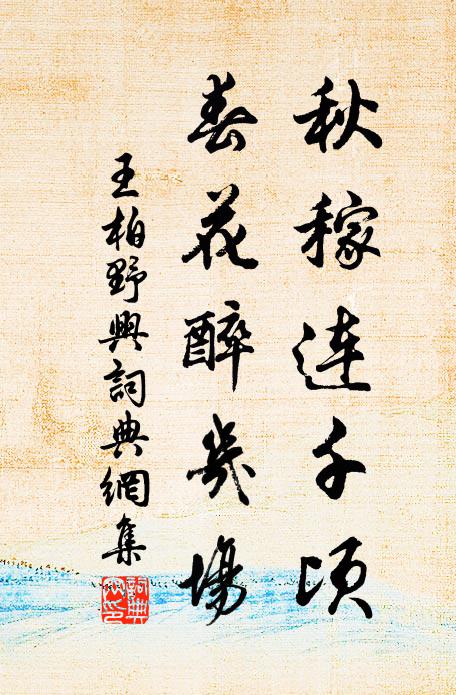 秋稼連千頃
春花醉幾場
王柏野興詞典網集
詞典